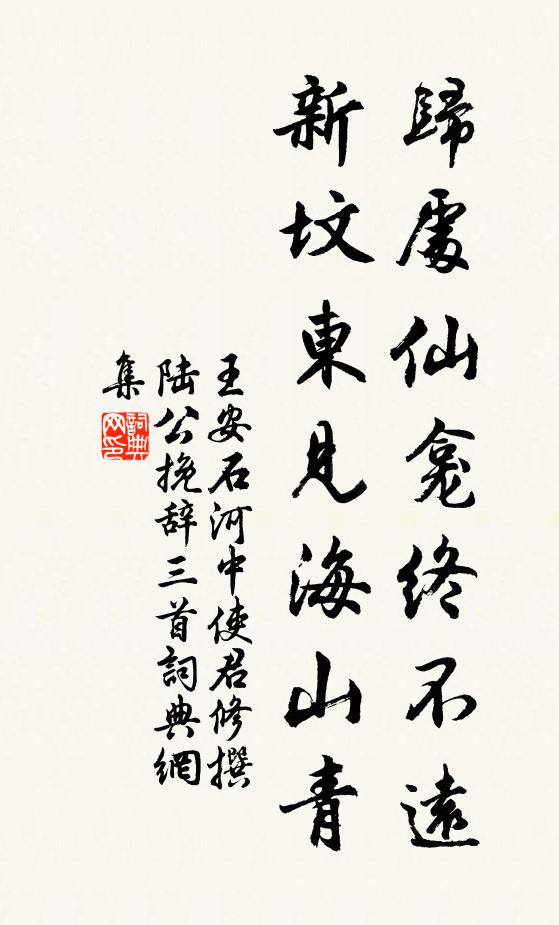 歸處仙龕終不遠
新坟東見海山青
王安石河中使君修撰
陸公挽辞三首詞典網
集
詞典
网印